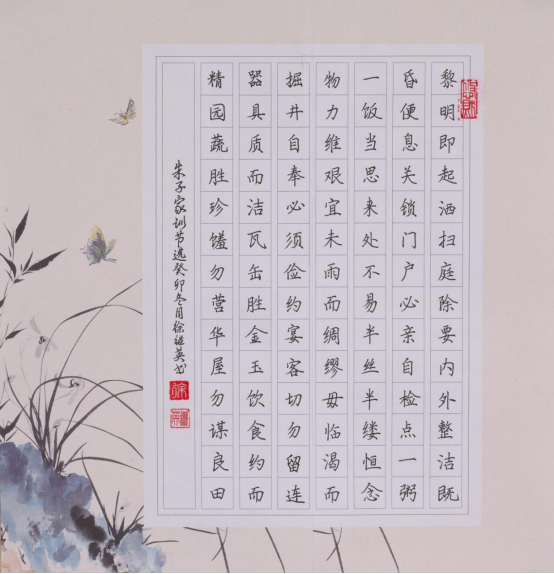 黎明即起洒扫庭除要内外整洁既
昏便息关锁门户必亲自检点一粥
一饭当思来处不易半丝半缕恒念
物力维艰宜未雨而绸缪毋临渴而
掘井自奉必须俭约宴客切勿留连
器具质而洁瓦缶胜金玉饮食约而
精园蔬胜珍馐勿营华屋勿谋良田
朱子家训节选癸卯冬月徐继英书